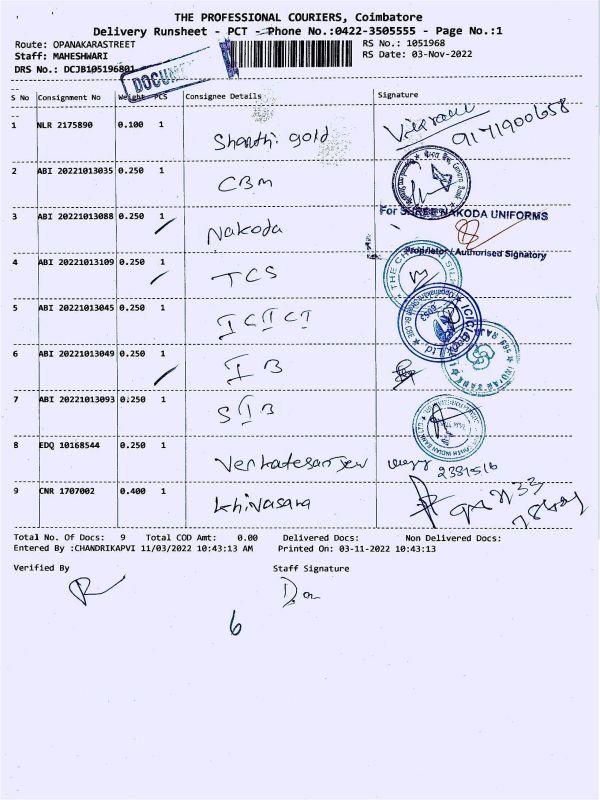 THE PROFESSIONAL COURIERS, Coimbatore
Delivery Runsheet - PCT - Phone No.:0422-3505555 - Page No.:1
Route: OPANAKARASTREET RS No.: 1051968
Staff: MAHESHWARI RS Date: 03-Nov-2022
DRS No.: DCJB105196801
S No Consignment No Weight PCS Consignee Details Signature
1 NLR 2175890 0.100 1 Shanthi gold
2 ABI 20221013035 0.250 1 CBM
3 ABI 20221013088 0.250 1 Nakoda For SHREE NAKODA UNIFORMS
Proprietor / Authorised Signatory
4 ABI 20221013109 0.250 1 TCS
5 ABI 20221013045 0.250 1 ICICI
6 ABI 20221013049 0.250 1 IB INDIAN BANK
7 ABI 20221013093 0.250 1 SIB
8 EDQ 10168544 0.250 1 Venkatesan Jew 2381516
9 CNR 1707002 0.400 1 Khivasara
Total No. Of Docs: 9 Total COD Amt: 0.00 Delivered Docs: Non Delivered Docs:
Entered By :CHANDRIKAPVI 11/03/2022 10:43:13 AM Printed On: 03-11-2022 10:43:13
Verified By Staff Signature
6